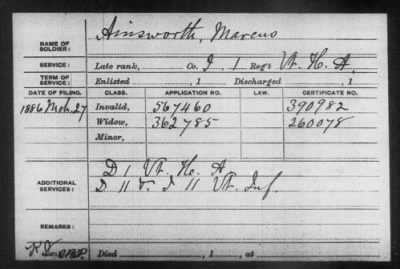 NAME OF SOLDIER: Ainsworth, Marcus
SERVICE: Late rank, Co. I, 1 Reg't Vt. H. A.
TERM OF SERVICE: Enlisted , 1 Discharged , 1
DATE OF FILING. CLASS. APPLICATION NO. LAW. CERTIFICATE NO.
1886 Mch. 27 Invalid, 567460 390982
Widow, 362785 260078
Minor,
ADDITIONAL SERVICES: D 1 Vt. H. A
D 11 & I 11 Vt. Inf.
REMARKS:
Died , 1 , at